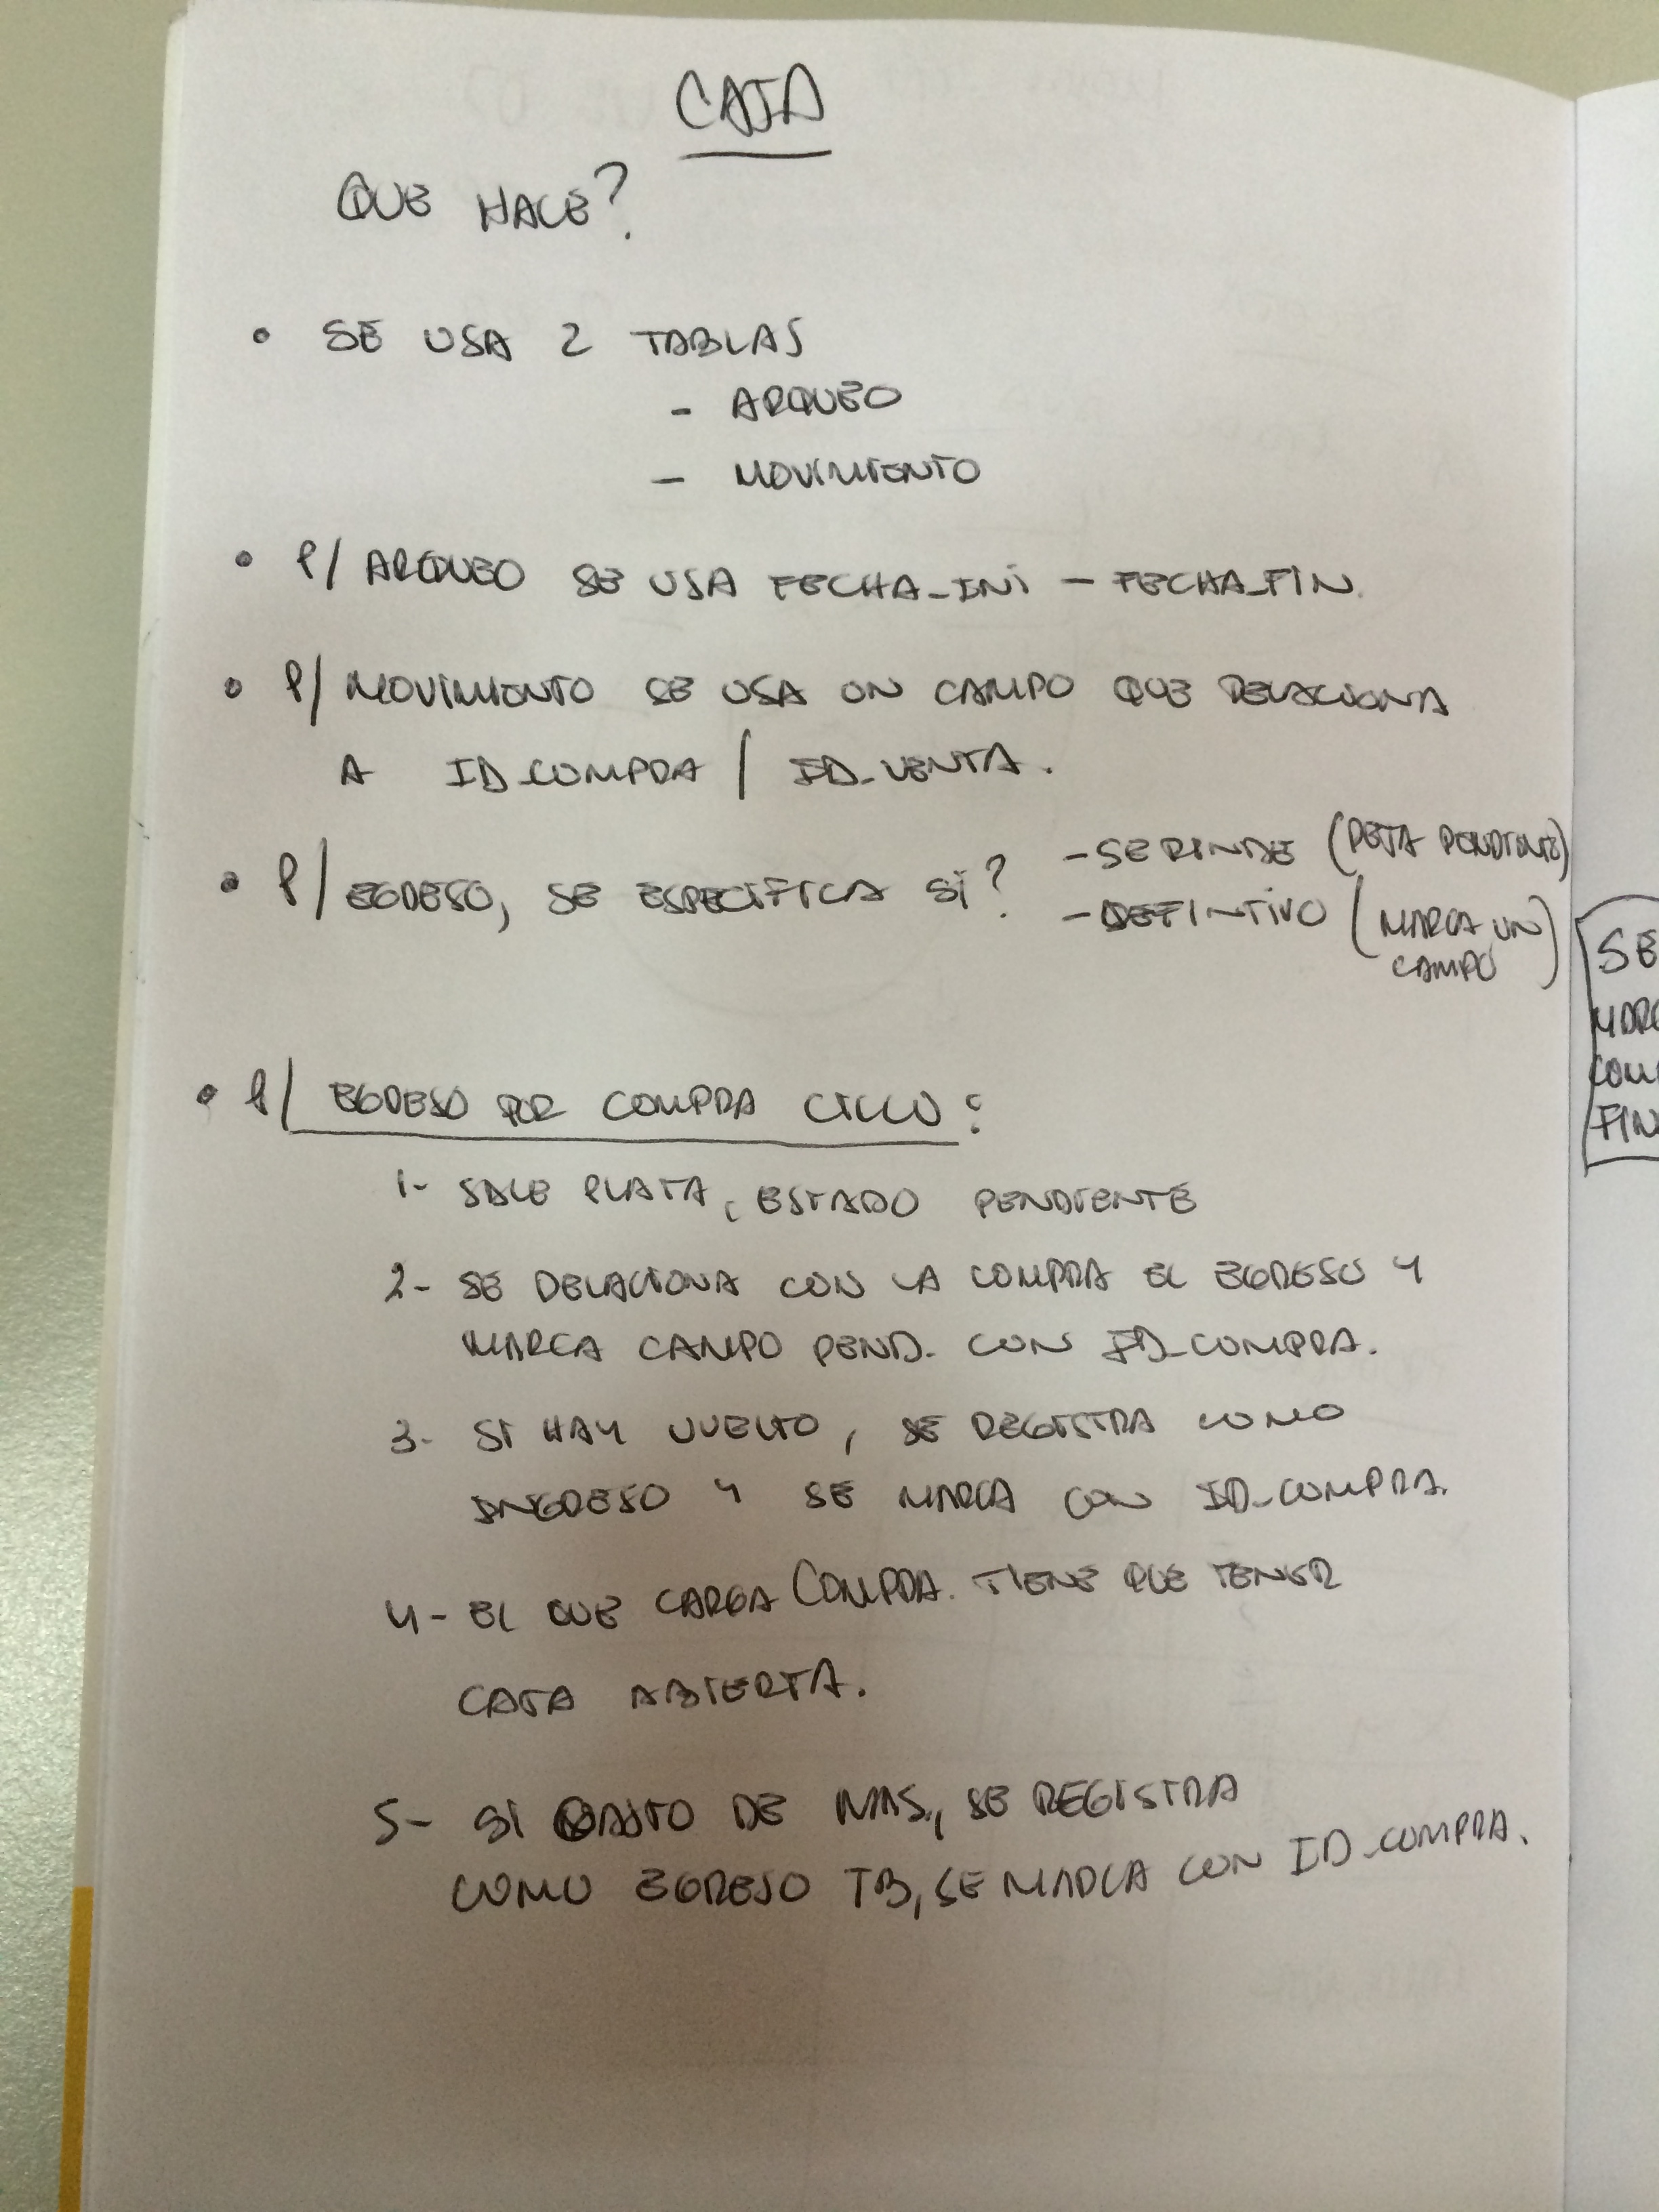 CAJA
QUE HACE?
• SE USA 2 TABLAS
- ARQUEO
- MOVIMIENTO
• P/ ARQUEO SE USA FECHA_INI - FECHA_FIN.
• P/ MOVIMIENTO SE USA UN CAMPO QUE RELACIONA
A ID_COMPRA / ID_VENTA.
• P/ EGRESO, SE ESPECIFICA SI? - SE RINDE (DEJA PENDIENTE)
- DEFINTIVO (MARCA UN
CAMPO)
• P/ EGRESO POR COMPRA CICLO:
1- SALE PLATA, ESTADO PENDIENTE
2- SE RELACIONA CON LA COMPRA EL EGRESO Y
MARCA CAMPO PEND. CON ID_COMPRA.
3- SI HAY VUELTO, SE REGISTRA COMO
INGRESO Y SE MARCA CON ID_COMPRA.
4- EL QUE CARGA COMPRA. TIENE QUE TENER
CAJA ABIERTA.
5- SI GASTO DE MAS, SE REGISTRA
COMO EGRESO TB, SE MARCA CON ID_COMPRA.
SE
MARC
COM
FIN